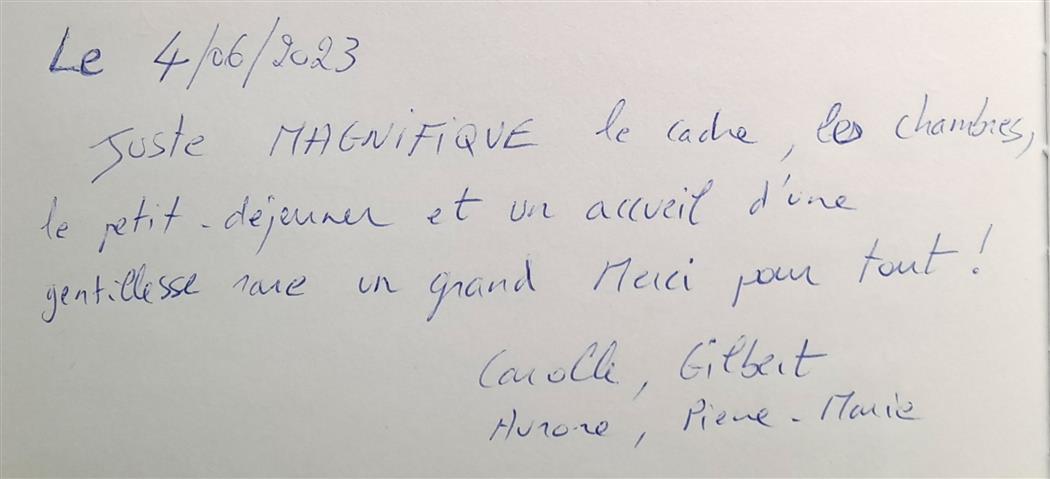 Le 4/06/2023
Juste MAGNiFiQUE le cadre, les chambres,
le petit-déjeuner et un accueil d'une
gentillesse rare un grand Merci pour tout !
Carolle, Gilbert
Aurore, Pierre-Marie